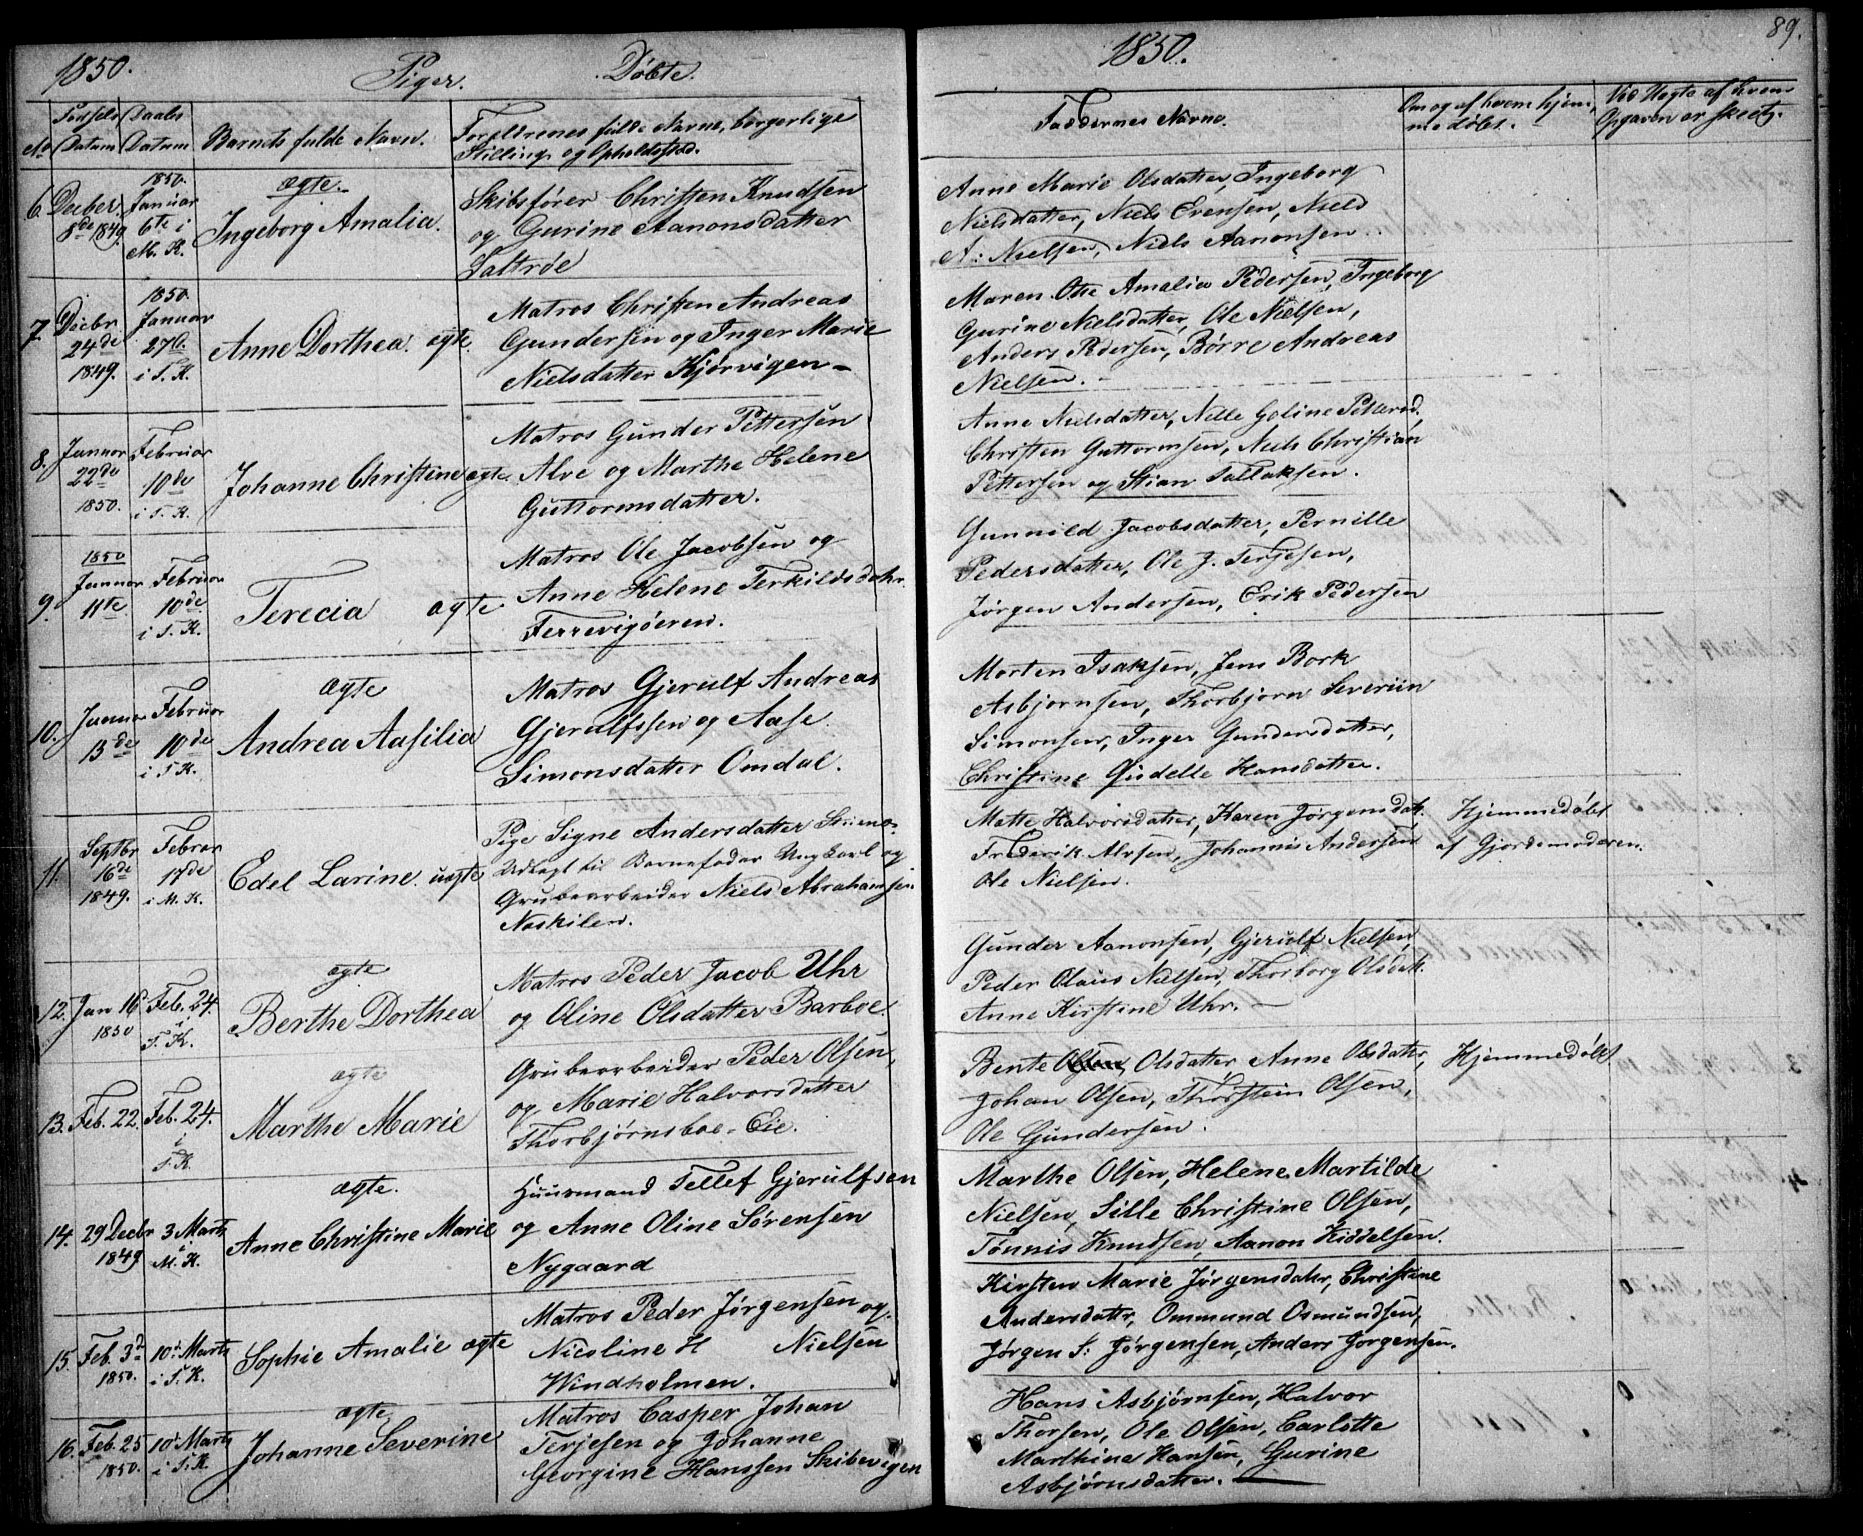 1850. Piger. Døbte.
No
Fødsels Datum
Daabs Datum
Barnets fulde Navn.
Forældrenes fulde Navne, borgerlige
Stilling og Opholdssted.
6. Decber 8de 1849.
1850. Januar 6te i M. K.
ægte.
Ingeborg Amalia.
Skibsfører Christen Knudsen
og Gurine Aanonsdatter
Saltrøe
7. Decbr 24de 1849.
1850. Januar 27de i T. K.
Anne Dorthea. ægte.
Matros Christen Andreas
Gundersen og Inger Marie
Nielsdatter Kjørvigen
8. Januar 22de 1850.
Februar 10de i T. K.
Johanne Christine ægte.
Matros Gunder Pettersen
Alve og Marthe Helene
Guttormsdatter.
9. 1850 Januar 11te
Februar 10de i T. K.
Terecia ægte
Matros Ole Jacobsen og
Anne Helene Terkildsdatr.
Ferrevigøeren.
10. Januar 13de
Februar 10de i T. K.
ægte
Andrea Aasilia
Matros Gjerulf Andreas
Gjerulfssen og Aase
Simonsdatter Omdal.
11. Septbr 16de 1849.
Februar 17de i M. K.
Edel Larine. uægte
Pige Signe Andersdatter
Udlagt til Barnefader Ungkarl og
Grubearbeider Niels Abrahamsen
Naskilen.
12. Jan 16 1850
Feb. 24. i T. K.
ægte
Berthe Dorthea
Matros Peder Jacob Uhr
og Oline Olsdatter Barboe.
13. Feb. 22.
Feb. 24. i T. K.
ægte
Marthe Marie
Grubearbeider Peder Olsen,
og Marie Halvorsdatter
Thorbjørnsboe-Eie.
14. 29 Decbr 1849
3 Marts i M. K.
ægte.
Anne Christine Marie
Huusmand Tellef Gjerulfsen
og Anne Oline Sørensen
Nygaard
15. Feb. 3d 1850.
10. Marts i T. K.
Sophie Amalie ægte
Matros Peder Jørgensen og
Nicoline H Nielsen
Windholmen.
16. Feb. 25 1850.
10. Marts i T. K.
ægte
Johanne Severine
Matros Casper Johan
Terjesen og Johanne
Georgine Hanssen Skibevigen
1850. 89.
Faddernes Navne.
Om og af hvem hjem-
medøbt.
Ved Uægte af hvem
Opgaven er skeet.
Anne Marie Olsdatter, Ingeborg
Nielsdatter, Niels Evensen, Niels
A: Nielsen, Niels Aanonsen
Maren Amalia Pedersen, Ingeborg
Gurine Nielsdatter, Ole Nielsen,
Anders Pedersen, Børre Andreas
Nielsen.
Anne Nielsdatter, Nille Goline Pettersd.
Christen Guttormsen, Niels Christian
Pettersen og Stian Tallaksen.
Gunnild Jacobsdatter, Pernille
Pedersdatter, Ole J. Terjesen,
Jørgen Andersen, Erik Pedersen
Morten Isaksen, Jens Bork
Asbjørnsen, Thorbjørn Severiin
Simonsen, Inger Gundersdatter,
Christine Gidelle Hansdatter.
Matte Halvorsdatter, Karen Jørgensdatr.
Frederik Alvsen, Johannis Andersen
Ole Nielsen.
Hjemmedøbt
af Gjordemoderen.
Gunder Aanonsen, Gjerulf Nielsen,
Peder Olaus Nielsen, Thorborg Olsdatr.
Anne Kirstine Uhr.
Bente Olsen, Olsdatter Anne Olsdatr,
Johan Olsen, Thorstein Olsen,
Ole Gundersen.
Hjemmedøbt
Marthe Olsen, Helene Martilde
Nielsen, Sille Christine Olsen,
Tønnis Knudsen, Aanon Kiddelsen.
Kirsten Marie Jørgensdatr, Christine
Andersdattr, Ommund Osmundsen,
Jørgen S: Jørgensen, Anders Jørgensen.
Hans Asbjørnsen, Halvor
Thorsen, Ole Olsen, Carlotte
Marthine Hansen, Gurine
Asbjørnsdatter.